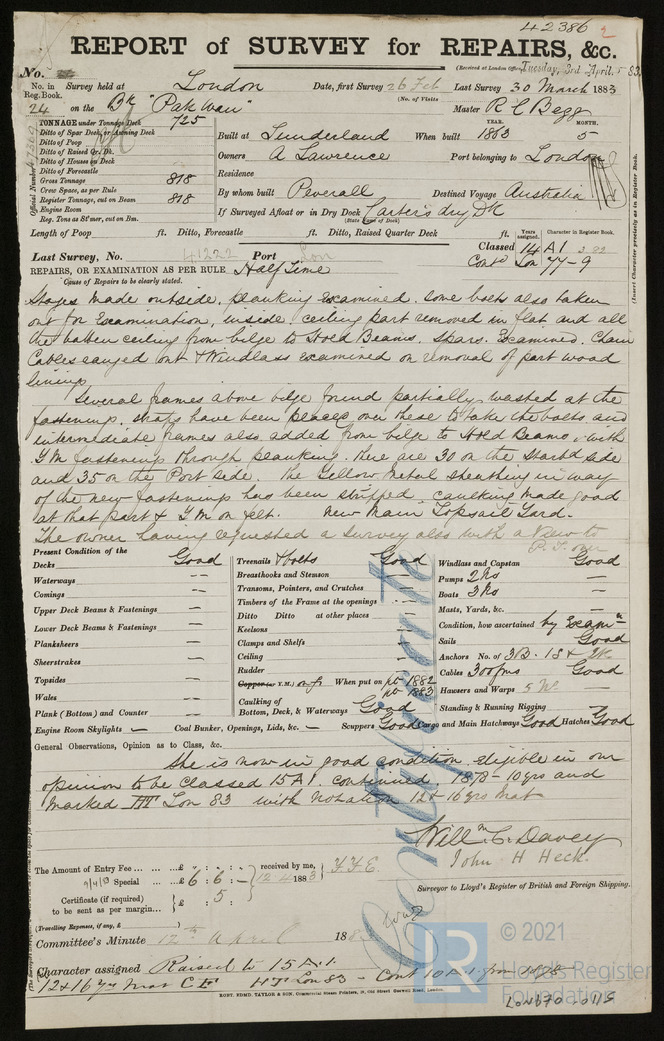 42386 2
REPORT of SURVEY for REPAIRS, &c.
(Received at London Office, Tuesday, 3rd April, 1883
No.
No. in Reg. Book. Survey held at London Date, first Survey 26 Feb Last Survey 30 March 1883
24 on the Bk "Pakwan" (No. of Visits) Master R C Begg
TONNAGE under Tonnage Deck 725
Ditto of Spar Deck, or Awning Deck
Ditto of Poop
Ditto of Raised Qr. Dk.
Ditto of Houses on Deck
Ditto of Forecastle
Gross Tonnage 818
Crew Space, as per Rule
Register Tonnage, cut on Beam 818
Engine Room
Reg. Tons as St'mer, cut on Bm.
Official Number
YEAR. MONTH.
Built at Sunderland When built 1863 5
Owners A Lawrence Port belonging to London
Residence
By whom built Peverall Destined Voyage Australia
If Surveyed Afloat or in Dry Dock Carter's dry Dk
(State name of Dock)
(Insert Character precisely as in Register Book.
Length of Poop ft. Ditto, Forecastle ft. Ditto, Raised Quarter Deck ft. Years assigned. Character in Register Book.
Last Survey, No. 41222 Port Lon Classed 14 A1 2.82
Contd Lon 77-9
REPAIRS, OR EXAMINATION AS PER RULE Half Time
Cause of Repairs to be clearly stated.
Stages made outside, planking examined. some bolts also taken
out for Examination, inside ceiling part removed in flat and all
the batten ceiling from bilge to Hold Beams. Spars. Examined. Chain
Cables ranged out & Windlass examined on removal of part wood
lining
Several frames above bilge found partially washed at the
fastenings. straps have been placed over these to take the bolts and
intermediate frames also added from bilge to Hold Beams. with
Y.M fastenings through planking. there are 30 on the Starbd side
and 35 on the Port side. The Yellow Metal sheathing in way
of the new fastenings has been stripped. caulking made good
at that part & Y.M on felt. New Main Topsail Yard.
The owner having requested a survey also with a View to
P. T. Over
Present Condition of the
Decks Good
Waterways —
Comings —
Upper Deck Beams & Fastenings —
Lower Deck Beams & Fastenings —
Planksheers —
Sheerstrakes —
Topsides —
Wales —
Plank (Bottom) and Counter —
Treenails & bolts Good
Breasthooks and Stemson —
Transoms, Pointers, and Crutches —
Timbers of the Frame at the openings —
Ditto Ditto at other places —
Keelsons —
Clamps and Shelfs —
Ceiling —
Rudder —
Copper (or Y.M.) on f. When put on pt 1882
pt 1883
Caulking of Bottom, Deck, & Waterways Good
Windlass and Capstan Good
Pumps 2 No —
Boats 3 No —
Masts, Yards, &c. —
Condition, how ascertained by Exam n
Sails Good
Anchors No. of 3B. 1S & 2K
Cables 300 fms Good
Hawsers and Warps 5 No —
Standing & Running Rigging —
Engine Room Skylights — Coal Bunker, Openings, Lids, &c. — Scuppers Good Cargo and Main Hatchways Good Hatches Good
General Observations, Opinion as to Class, &c.
She is now in good condition eligible in our
opinion to be classed 15 A1. continued 1878 - 10 yrs and
marked HT Lon 83 with notation 12 & 16 yrs Mat
Will m C. Davey
John H Heck.
Surveyor to Lloyd's Register of British and Foreign Shipping.
The Amount of Entry Fee ... ...£ : :
9/4/83 Special ... ...£ 6 : 6 : -
received by me, 12 4 1883
Certificate (if required) to be sent as per margin... £ : 5 .
(Travelling Expenses, if any, £ )
Committee's Minute 12th April 188
Character assigned Raised to 15 A.1.
12 & 16 yr Mat C F HT Lon 83 - Cont 10 A.1 from 1878
KONT. EDMD. TAYLOR & SON, Commercial Steam Printers, Old Street Goswell Road, London.
LR © 2021
Lloyd's Register
Foundation
LON670-0115